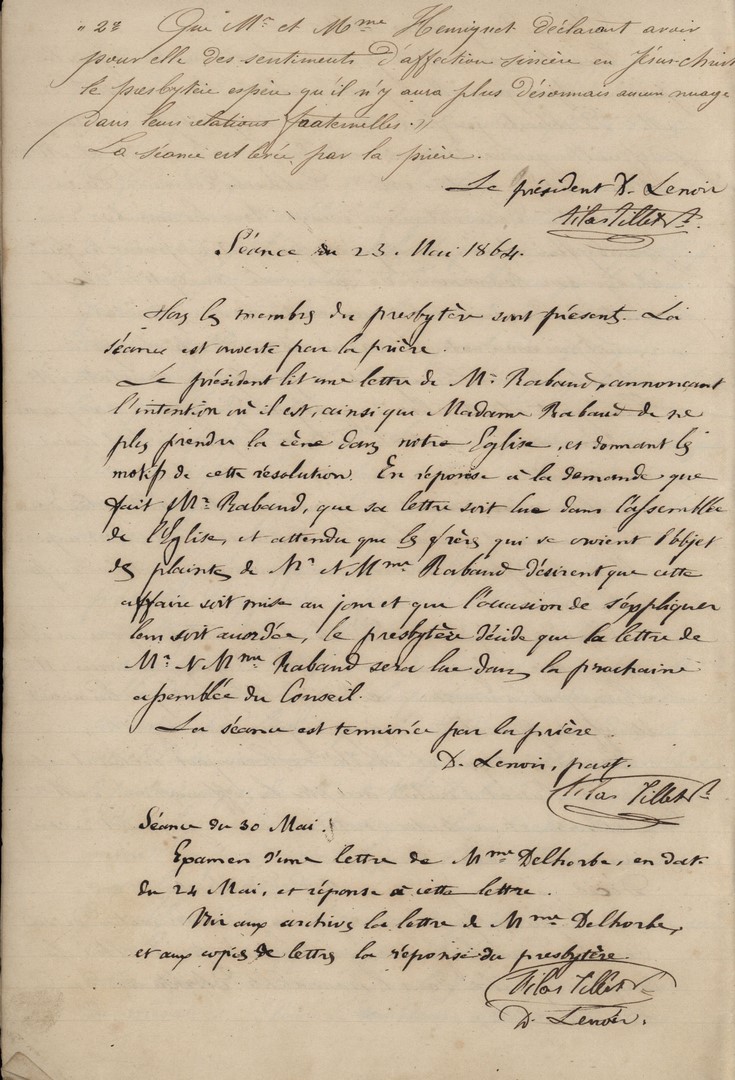 "2° Que Mr et Mme Henriquet déclarant avoir
pour elle des sentiments d'affection sincère en Jésus-Christ
le presbytère espère qu'il n'y aura plus désormais aucun nuage
dans leurs relations fraternelles."
La séance est levée par la prière.
Le président D. Lenoir
Silas Tillet
Séance du 23. Mai 1864.
Tous les membres du presbytère sont présents. La
séance est ouverte par la prière.
Le président lit une lettre de Mr Rabaud, annonçant
l'intention où il est, ainsi que Madame Rabaud de ne
plus prendre la cène dans notre Eglise, et donnant les
motifs de cette résolution. En réponse à la demande que
fait Mr Rabaud, que sa lettre soit lue dans l'assemblée
de l'Eglise, et attendu que les frères qui se croient l'objet
des plaintes de Mr et Mme Rabaud désirent que cette
affaire soit mise au jour et que l'occasion de s'expliquer
leur soit accordée, le presbytère décide que la lettre de
Mr et Mme Rabaud sera lue dans la prochaine
assemblée du Conseil.
La séance est terminée par la prière.
D. Lenoir, past.
Silas Tillet
Séance du 30 Mai.
Examen d'une lettre de Mme Delhorbe, en date
du 24 Mai, et réponse à cette lettre.
Voir aux archives la lettre de Mme Delhorbe,
et aux copies de lettres la réponse du presbytère.
Silas Tillet
D. Lenoir.